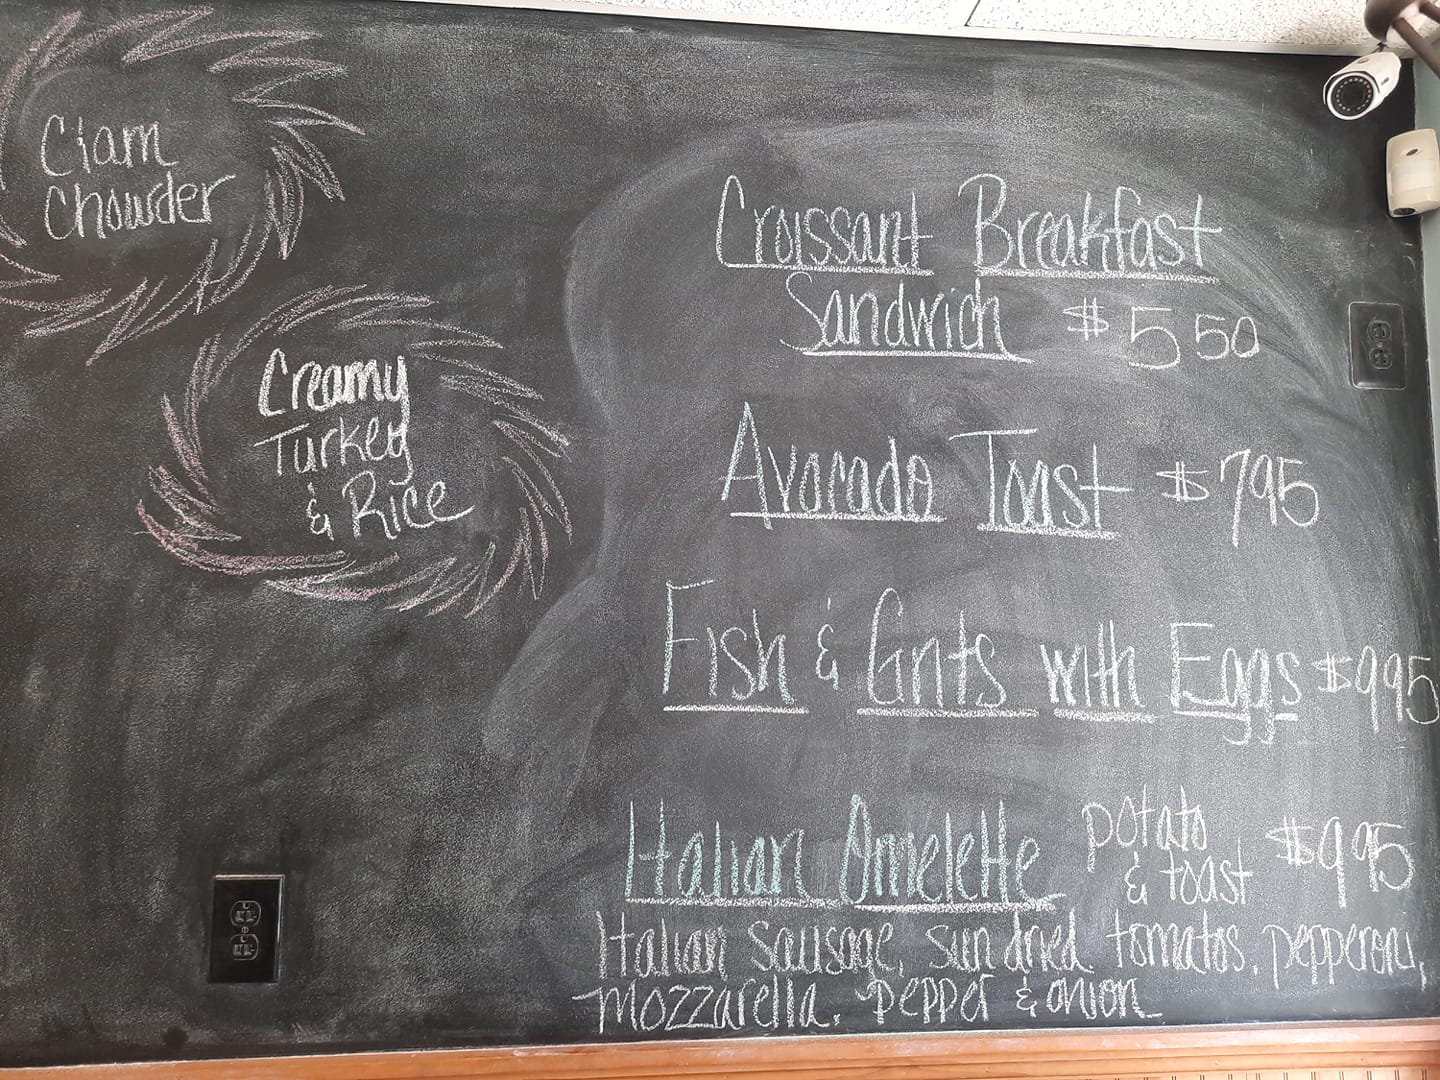 Clam
Chowder
Creamy
Turkey
& Rice
Croissant Breakfast
Sandwich $5.50
Avocado Toast $7.95
Fish & Grits with Eggs $9.95
Italian Omelette potato & toast $9.95
Italian sausage, sun dried tomatos, pepperoni,
mozzarella, pepper & onion